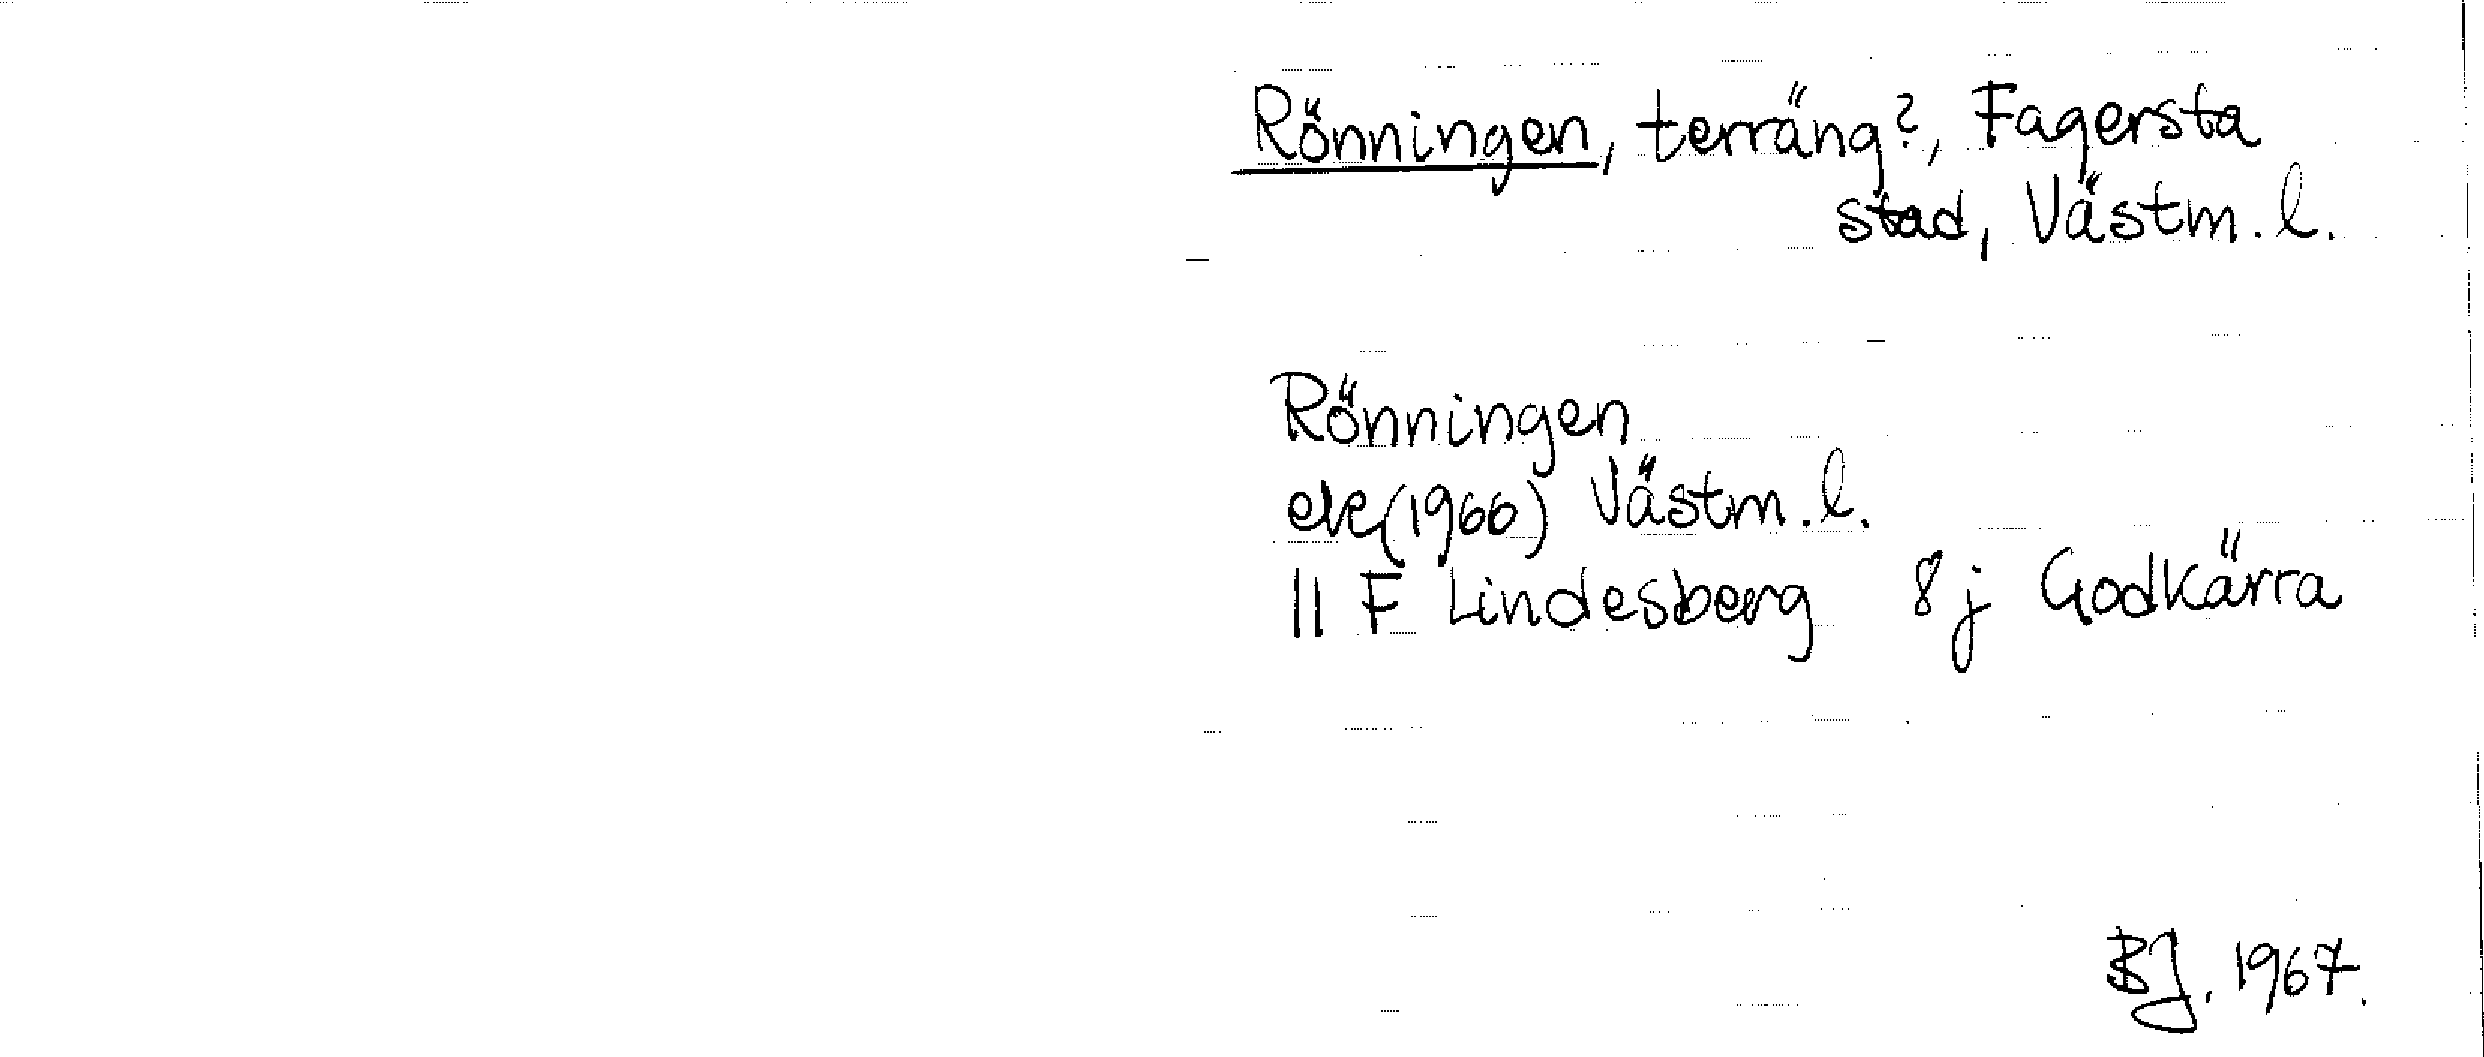 Rönningen, terräng?, Fagersta
stad, Västm. l.
Rönningen
ek (1966) Västm. l.
11 F Lindesberg 8 j Godkärra
BJ. 1967.